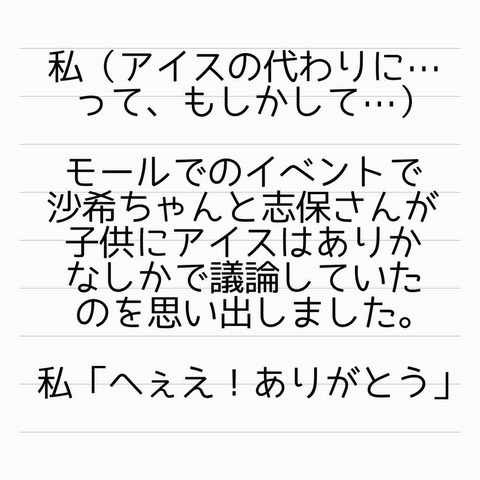 私（アイスの代わりに…
って、もしかして…）
モールでのイベントで
沙希ちゃんと志保さんが
子供にアイスはありか
なしかで議論していた
のを思い出しました。
私「へぇえ！ありがとう」